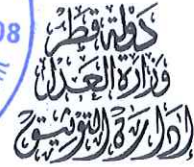 دولة قطر
وزارة العدل
إدارة التوثيق
08